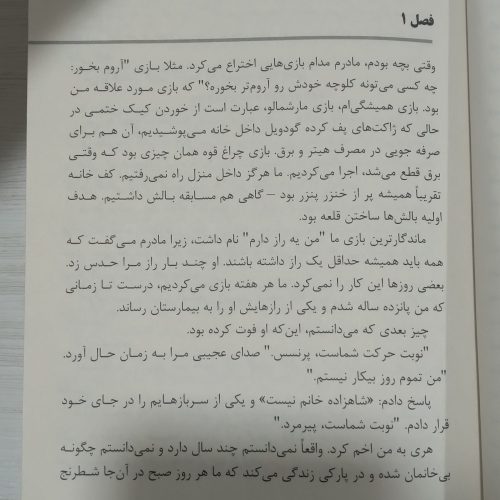 فصل ۱
وقتی بچه بودم، مادرم مدام بازی‌هایی اختراع می‌کرد. مثلا بازی "آروم بخور:
چه کسی می‌تونه کلوچه خودش رو آروم‌تر بخوره؟" که بازی مورد علاقه من
بود. بازی همیشگی‌ام، بازی مارشمالو، عبارت است از خوردن کیک ختمی در
حالی که ژاکت‌های پف کرده گودویل داخل خانه می‌پوشیدیم، آن هم برای
صرفه جویی در مصرف هیتر و برق. بازی چراغ قوه همان چیزی بود که وقتی
برق قطع می‌شد، اجرا می‌کردیم. ما هرگز داخل منزل راه نمی‌رفتیم. کف خانه
تقریباً همیشه پر از خنزر پنزر بود – گاهی هم مسابقه بالش داشتیم. هدف
اولیه بالش‌ها ساختن قلعه بود.
ماندگارترین بازی ما "من یه راز دارم" نام داشت، زیرا مادرم می‌گفت که
همه باید همیشه حداقل یک راز داشته باشند. او چند بار راز مرا حدس زد.
بعضی روزها این کار را نمی‌کرد. ما هر هفته بازی می‌کردیم، درست تا زمانی
که من پانزده ساله شدم و یکی از رازهایش او را به بیمارستان رساند.
چیز بعدی که می‌دانستم، این‌که او فوت کرده بود.
"نوبت حرکت شماست، پرنسس." صدای عجیبی مرا به زمان حال آورد.
"من تموم روز بیکار نیستم."
پاسخ دادم: «شاهزاده خانم نیست» و یکی از سربازهایم را در جای خود
قرار دادم. "نوبت شماست، پیرمرد."
هری به من اخم کرد. واقعاً نمی‌دانستم چند سال دارد و نمی‌دانستم چگونه
بی‌خانمان شده و در پارکی زندگی می‌کند که ما هر روز صبح در آن‌جا شطرنج